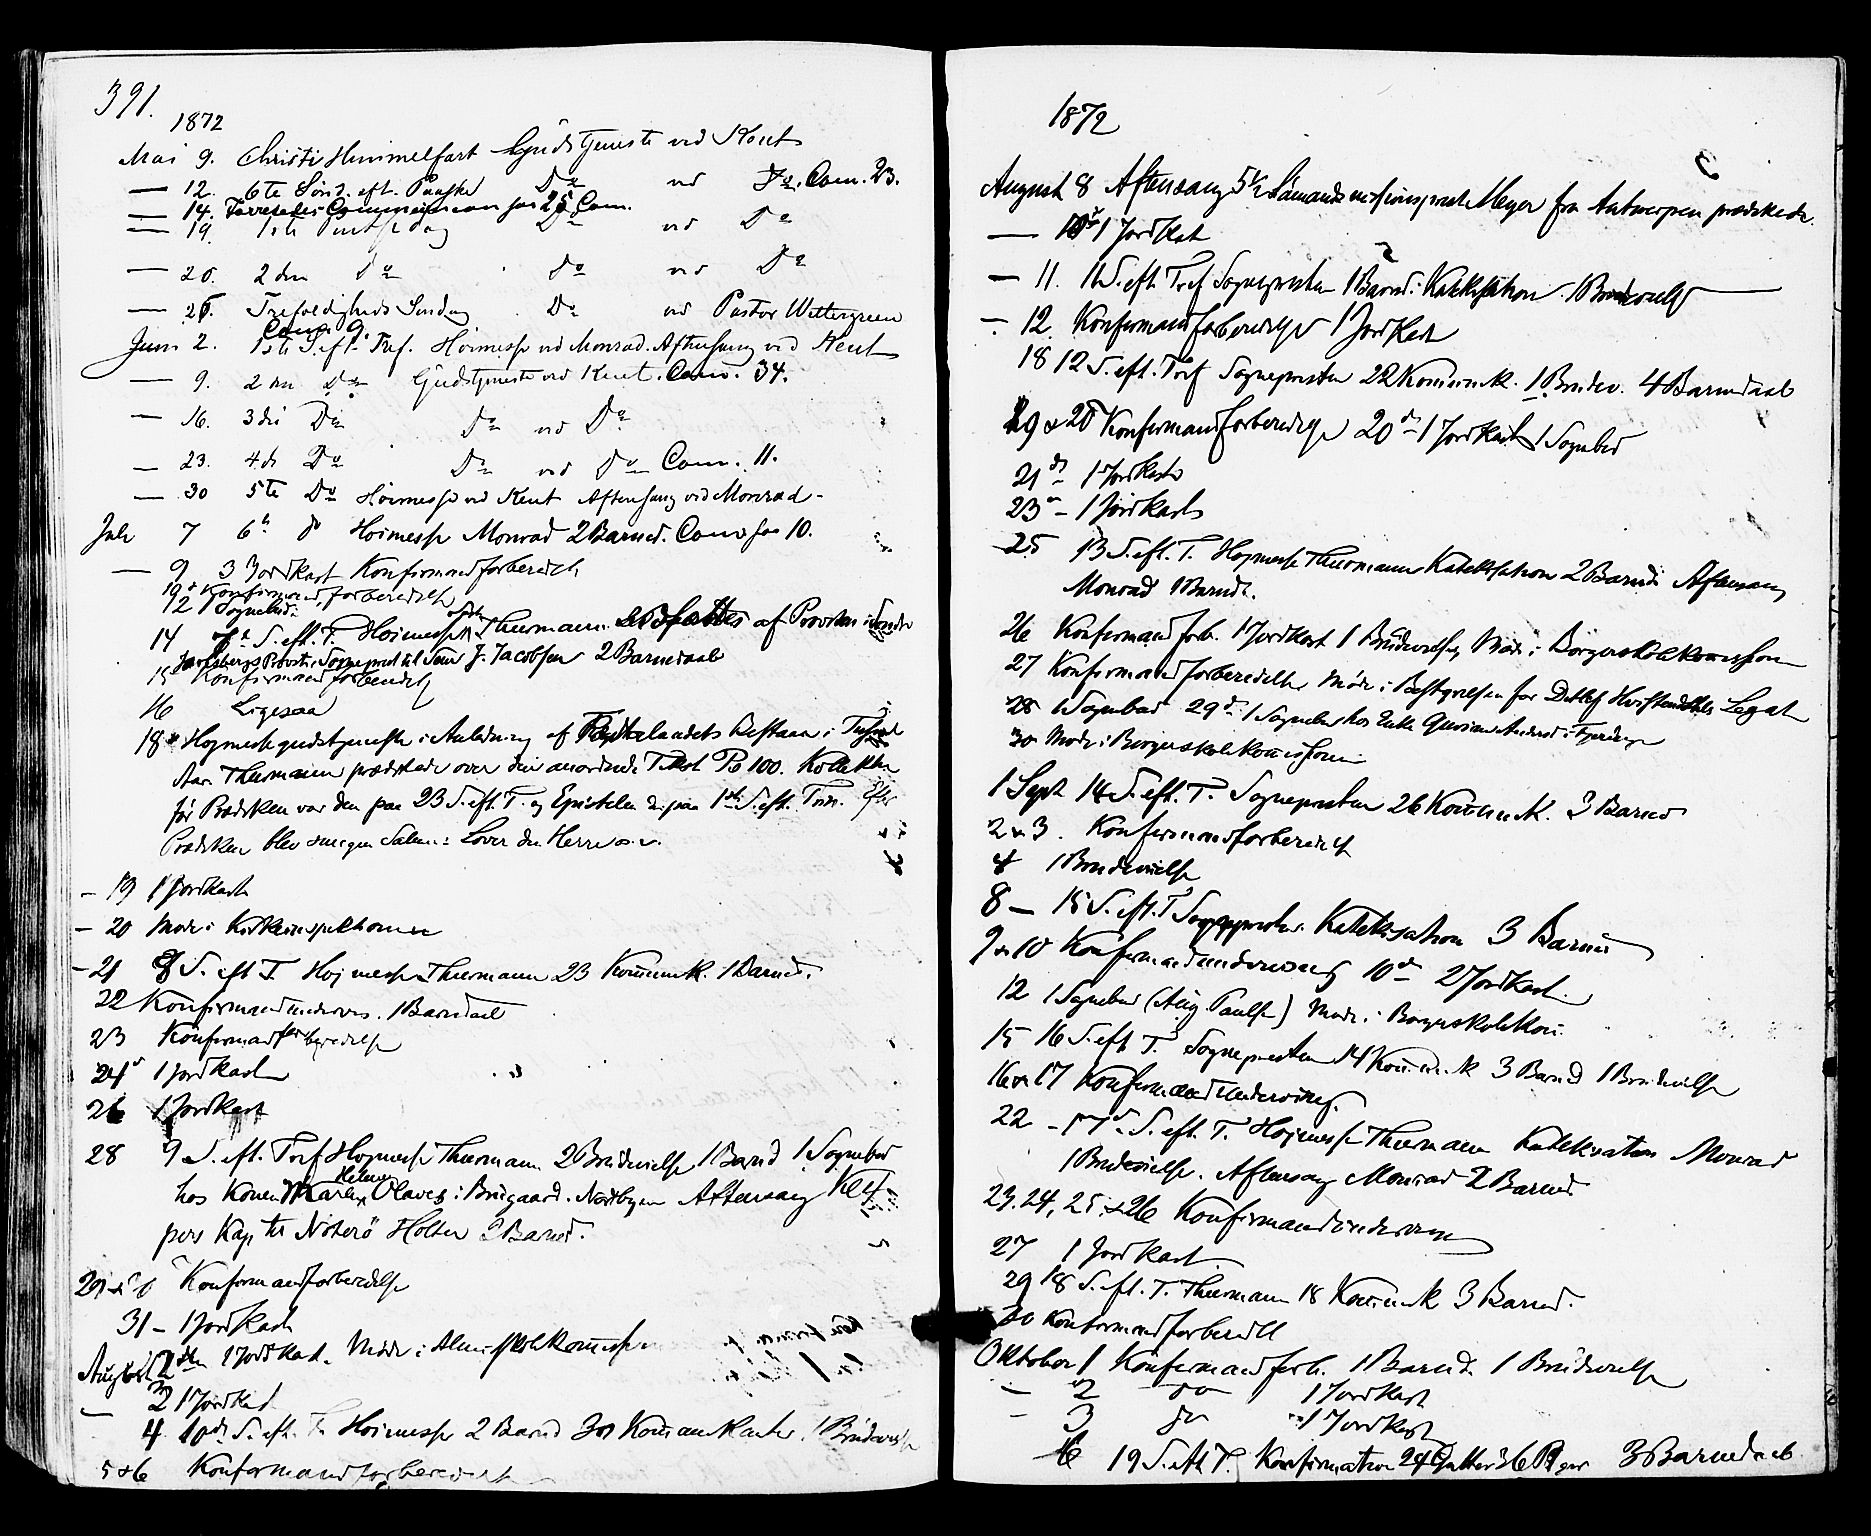 391.
1872
Mai 9. Christi Himmelfart Gudstjeneste ved Knut
— 12. 6te Sönd. eft. Paaske Do ved Do. Com. 23.
— 14. Communion for 25 Com.
— 19. 1ste Pintsedag Do ved Do
— 20. 2den Do Do ved Do
— 26. Trefoldigheds Söndag Do ved Pastor Wettergreen
Com. 9.
Juni 2. 1ste S. eft. Tref. Höimesse ved Monrad. Aftensang ved Knut
— 9. 2den Do Gudstjeneste ved Knut. Com. 34.
— 16. 3die Do Do ved Do
— 23. 4de Do Do ved Do Com. 11.
— 30 5te Do Höimesse ved Knut Aftensang ved Monrad -
Juli 7 6te do Höimesse Monrad 2 Barned. Com. for 10.
— 9 3 Jordkast Konfirmandforbered.
Konfirmandforberedelse
12 1 Sognebud
14 7de S. eft. T. Höimesse Thurmann af Provsten i Söndre
Jarlsbergs Provsti Sognepræst til Sem J. Jacobsen 2 Barnedaab
15 Konfirmandforbered.
16 Ligesaa
18 Höjmessegudstjeneste i Anledning af Bestaaen i Tusind
Aar Thurmann prædikede over den anordnede Text Ps 100. Kollekten
för Prædiken var den paa 23 S. eft. T. og Epistelen d. paa 1ste S. eft. Trin. Efter
Prædiken blev sungen Salmen: Lover den Herre o.s.v.
- 19 1 Jordkast
- 20 Möde i Kirkeinspektionen
- 21 8 S. eft T. Höjmesse Thurmann 23 Kommunik. 1 Barned.
22 Konfirmandunderv. 1 Barnedaab
23 Konfirmandforberedelse
24 1 Jordkast
26 1 Jordkast
28 9 S. eft. Tref Höjmesse Thurmann 2 Brudevielse 1 Barned 1 Sognebud
hos Konen Olaves i Bruegaard. Nordbyen Aftensang
pers Kap til Nöterö Holter 2 Barned.
Konfirmandforberedelse
31 – 1 Jordkast
August 1 1 Jordkast. Möde i Almueskolekommission
2 1 Jordkast
— 4 10de S. eft. T. Höimesse 2 Barned 30 Kommunikanter. 1 Brudevielse
5 & 6 Konfirmandforberedelse
1872
August 8 Aftensang 5½ Sömandsmissionsprest Meyer fra Antwerpen prædikede.
— 10 1 Jordkast
— 11. 11 S. eft Tref Sognepresten 1 Barned. Katekisation. 1 Brudevielse
— 12 Konfirmandforberedelse 1 Jordkast
18 12 S. eft. Tref Sognepresten 22 Kommunik. 1 Brudev. 4 Barnedaab
19 & 20 Konfirmandforberedelse 20de 1 Jordkast 1 Sognebud
21de 1 Jordkast
23de – 1 Jordkast
25 13 S. eft. T. Höjmesse Thurmann Katekisation 2 Barned. Aftensang
Monrad 1 Barned.
26 Konfirmandforb. 1 Jordkast 1 Brudevielse Möde i Borgerskolekommission
27 Konfirmandforberedelse Möde i Bestyrelsen for Detlef Hvistendahls Legat
28 1 Sognebud 29de 1 Sognebud hos Enke
30 Möde i Borgerskolekommissionen
1 Sept 14 S. eft. T. Sognepresten 26 Kommunik. 3 Barned
2 & 3. Konfirmandforbered.
4 1 Brudevielse
8 – 15 S. eft. T Sognepresten Katekisation 3 Barned
9 & 10 Konfirmandundervisning 10de 2 Jordkast.
12 1 Sognebud (Aug. Paulsen) Möde i Borgerskolekom.
15 16 S. eft T. Sognepresten 14 Kommunik 3 Barned 1 Brudevielse
16 & 17 Konfirmandundervisng.
22 - 17de S. eft. T. Höjmesse Thurmann Katekisation Monrad
1 Brudevielse. Aftensang Monrad 2 Barned
23. 24, 25 & 26 Konfirmandunderv.
27 1 Jordkast
29 18 S. eft. T. Thurmann 18 Kommunik 3 Barned.
30 Konfirmandforbered
Oktober 1 Konfirmandforb. 1 Barned. 1 Brudevielse
— 2 do 1 Jordkast
— 3 do 1 Jordkast
6 19 S. eft T. Konfirmation 24 Gutter 36 Piger 3 Barnedaab